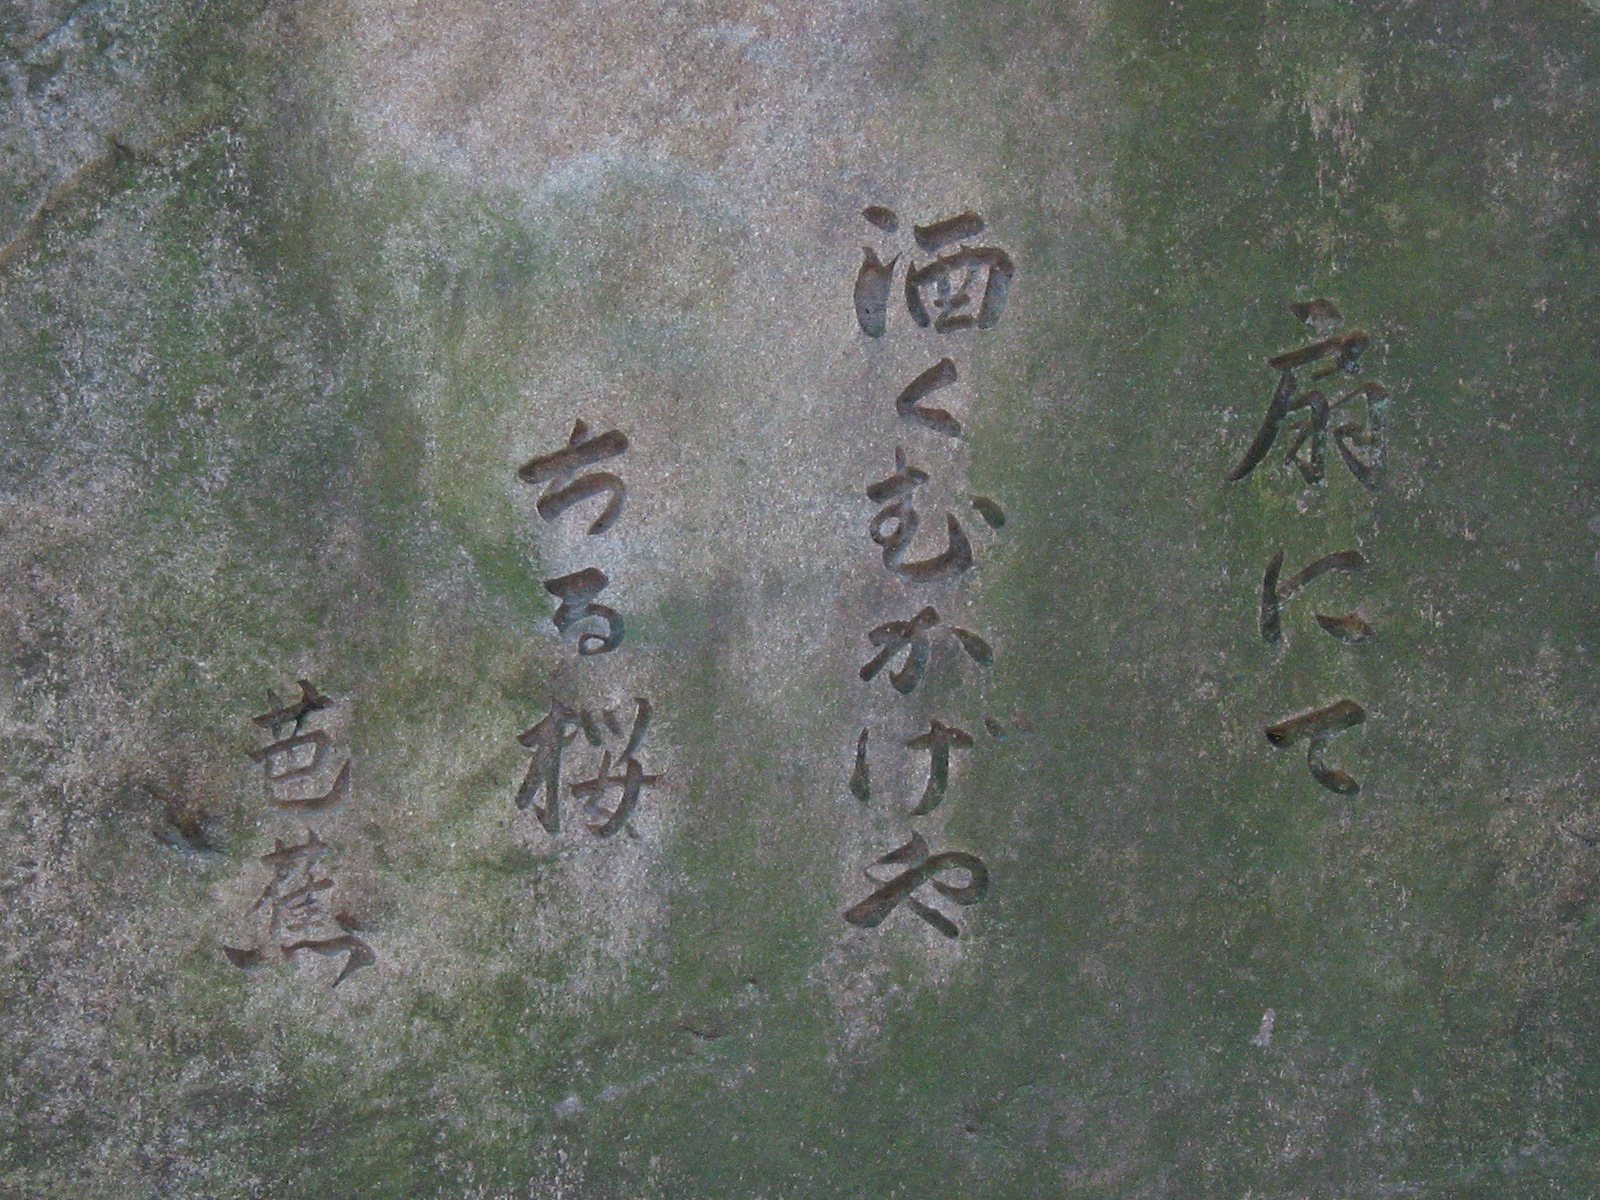 扇にて
酒くむかげや
ちる桜
芭蕉